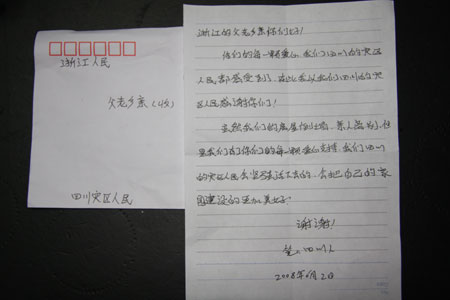 浙江人民
父老乡亲(收)
四川灾区人民
浙江的父老乡亲你们好!
你们的每一颗爱心,我们四川的灾区
人民都感受到了,在此我以我们四川的灾
区人民感谢你们!
虽然我们的房屋倒塌,亲人离别,但
是我们有你们的每一颗爱心支持,我们四川
的灾区人民会坚强活下去的,会把自己的家
园建设的更加美好!
谢谢!
四川人
2008年6月2日